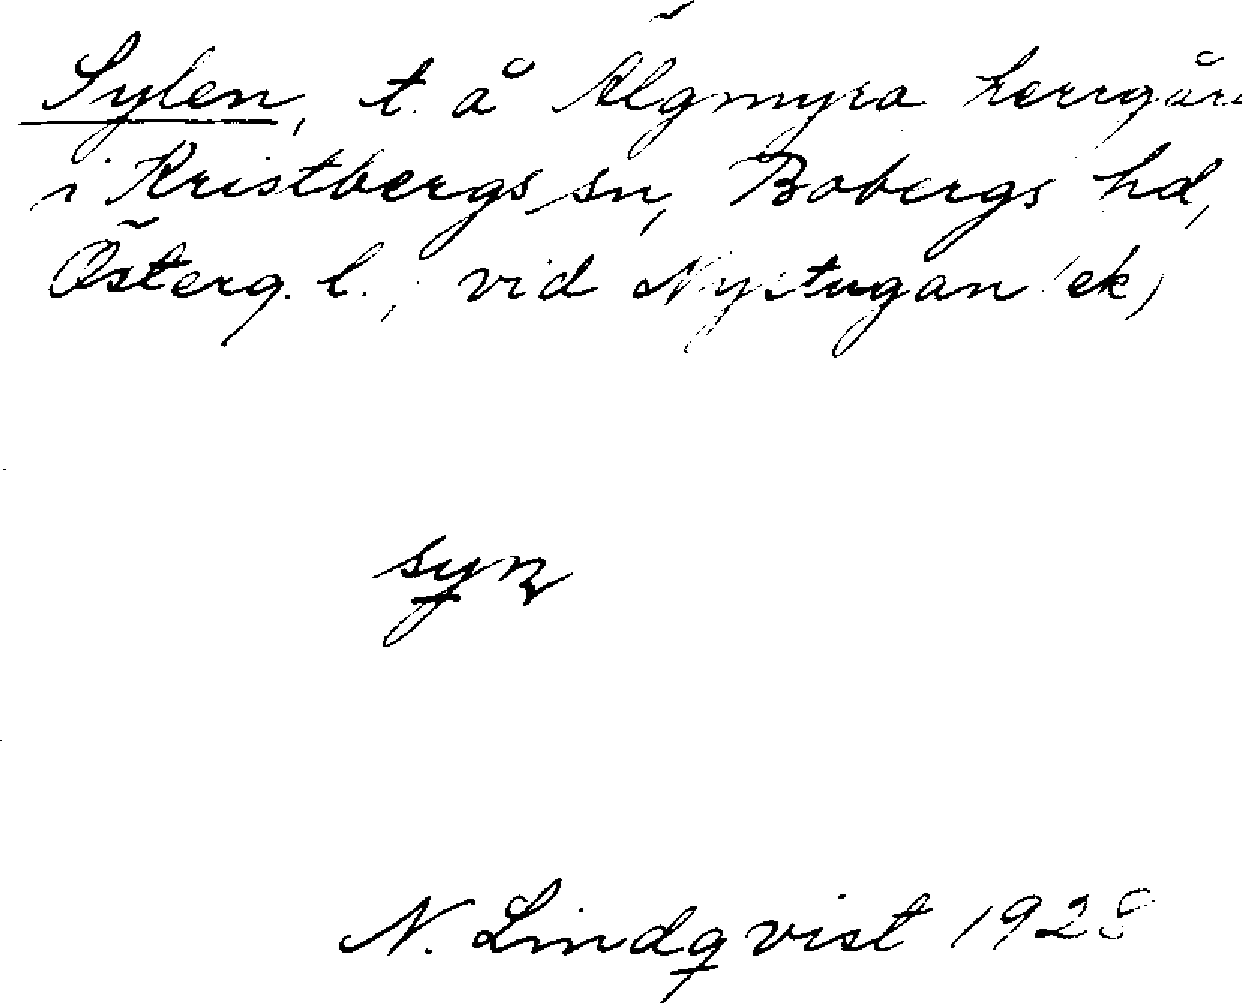 Sylen, t. å Älgmyra herrgård
i Kristbergs sn, Bobergs hd,
Österg. l., vid Nystugan (ek)
N. Lindqvist 1928